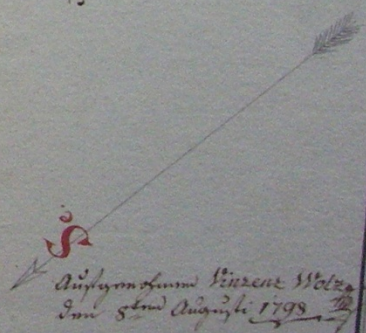 S
Aufgenohmen Vinzenz Wolz
den 8ten Augusti 1798